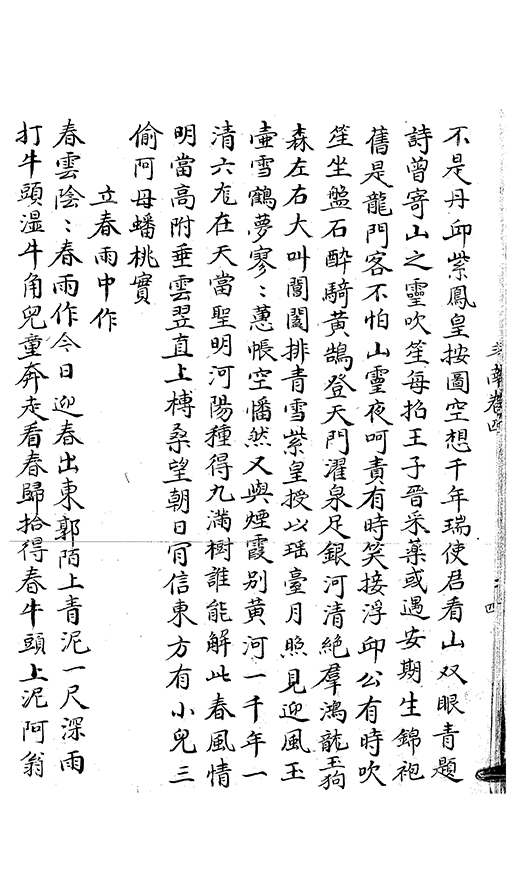 不是丹邱紫鳳皇按圖空想千年瑞使君看山双眼青題
詩曾寄山之靈吹笙每招王子晉采藥或遇安期生錦袍
舊是龍門客不怕山靈夜呵責有時笑接浮邱公有時吹
笙坐盤石酔騎黃鵠登天門濯泉足銀河清絶羣鴻龍玉狗
森左右大叫閶闔排青雪紫皇授以瑶臺月照見迎風玉
壷雪鶴夢寥〻蕙帳空憣然又與煙霞别黃河一千年一
清六尨在天當聖明河陽種得九滿樹誰能解此春風情
明當高附垂雲翌直上榑桑望朝日肎信東方有小兒三
偷阿母蟠桃實
立春雨中作
春雲陰〻春雨作今日迎春出東郭陌上青泥一尺深雨
打牛頭湿牛角兒童奔走看春歸拾得春牛頭上泥阿翁